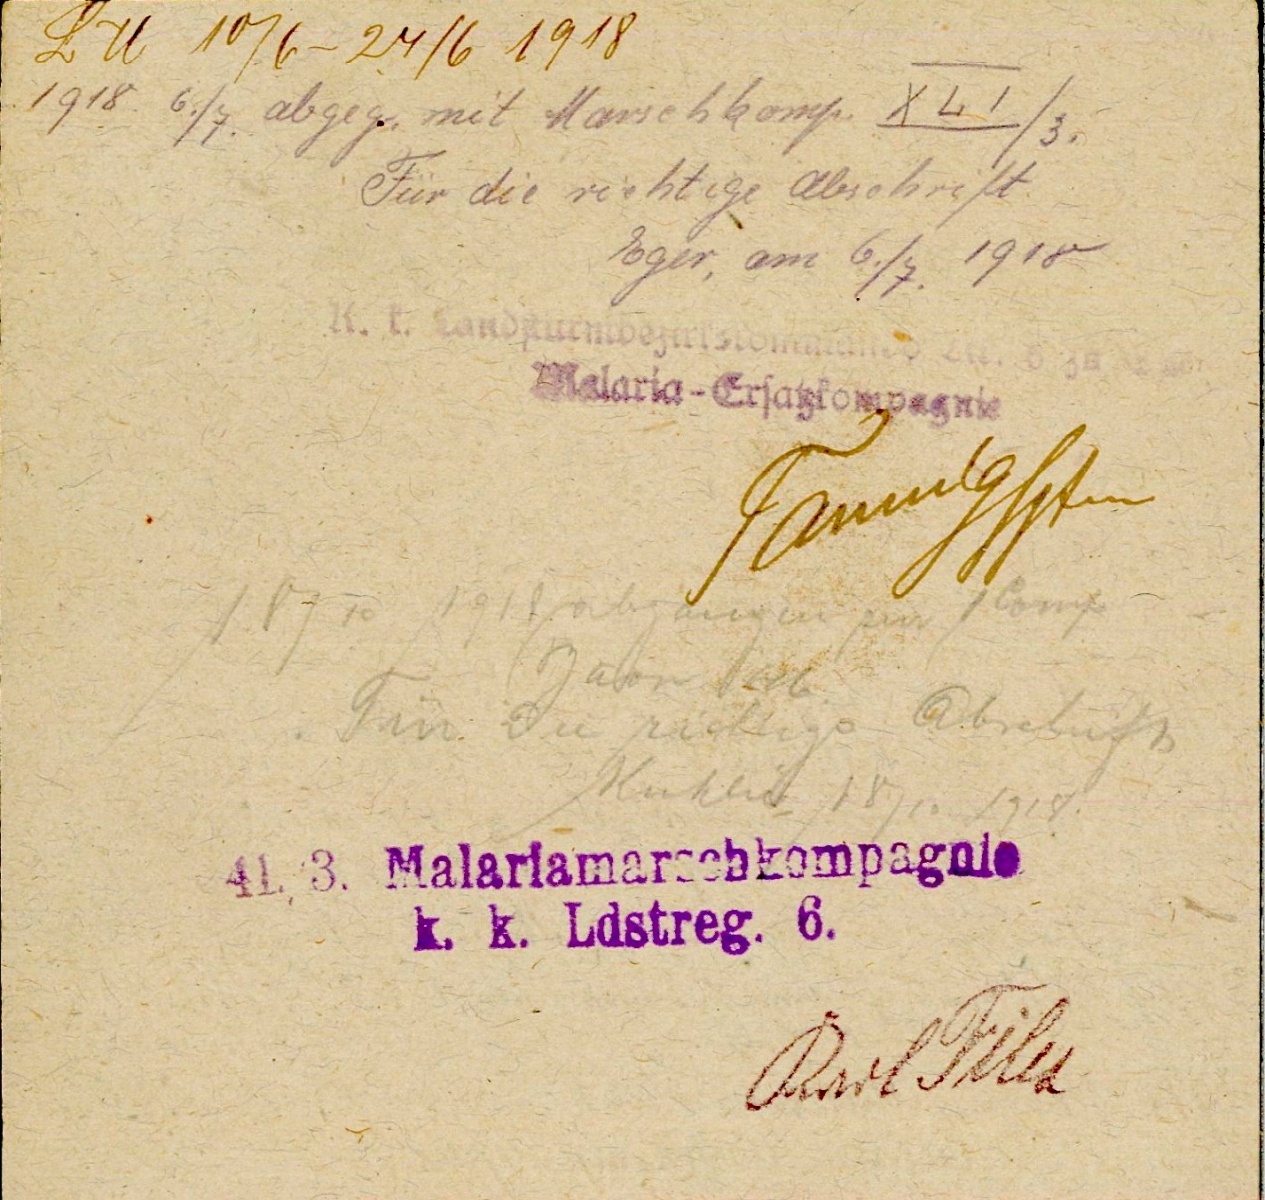 LU 10/6 - 24/6 1918
1918 6./7. abgeg. mit Marschkomp. XLI/3.
Für die richtige Abschrift
Eger, am 6./7. 1918
K. k. Landsturmbezirkskommando Nr. 6 zu Eger
Malaria-Ersatzkompagnie
18/10 1918 abgangen zur 1 Comp
Baon
Für die richtige Abschrift
18/10 1918.
41. 3. Malariamarschkompagnie
k. k. Ldstreg. 6.
Karl